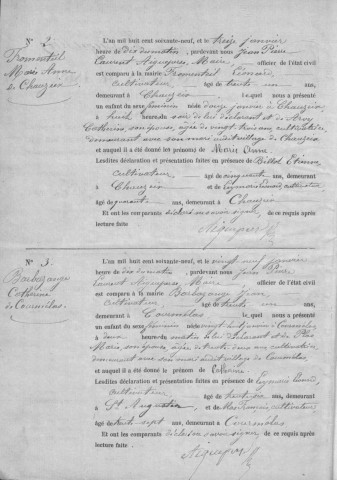 N° 2
Fromentiel
Marie Anne
de Chauzeix
L'an mil huit cent soixante-neuf, et le treize janvier
heure de dix du matin, pardevant nous Jean Pierre
Laurent Aigueperse, Maire, officier de l'état civil
est comparu à la mairie Fromentiel Léonard,
cultivateur âgé de trente ans,
demeurant à Chauzeix lequel nous a présenté
un enfant du sexe féminin née douze janvier de Chauzeix
à huit heures du soir de lui déclarant et de
Catherine, son épouse, âgée de vingt trois ans cultivatrice,
demeurant avec son mari audit village de Chauzeix
et auquel il a été donné le prénom de Marie Anne.
Lesdites déclaration et présentation faites en présence de Billot Etienne
cultivateur âgé de cinquante ans, demeurant
à Chauzeix et de Léonard cultivateur
âgé de quarante ans, demeurant à Chauzeix
Et ont les comparants déclaré ne savoir signer, de ce requis après
lecture faite
Aigueperse
N° 3.
Barbazange
Catherine
de Courniolas
L'an mil huit cent soixante-neuf, et le vingt neuf janvier
heure de dix du matin, pardevant nous Jean Pierre
Laurent Aigueperse Maire officier de l'état civil
est comparu à la mairie Barbazange Jean
cultivateur âgé de trente ans,
demeurant à Courniolas lequel nous a présenté
un enfant du sexe féminin née vingt huit janvier à Courniolas
à deux heures du matin de lui déclarant et de
Marie, son épouse, âgée de trente deux ans cultivatrice,
demeurant avec son mari audit village de Courniolas,
et auquel il a été donné le prénom de Catherine
Lesdites déclaration et présentation faites en présence de
cultivateur âgé de trente six ans, demeurant
à St Augustin et de Mas François cultivateur
âgé de trente-sept ans, demeurant à Courniolas
Et ont les comparants déclaré ne savoir signer, de ce requis après
lecture faite.
Aigueperse